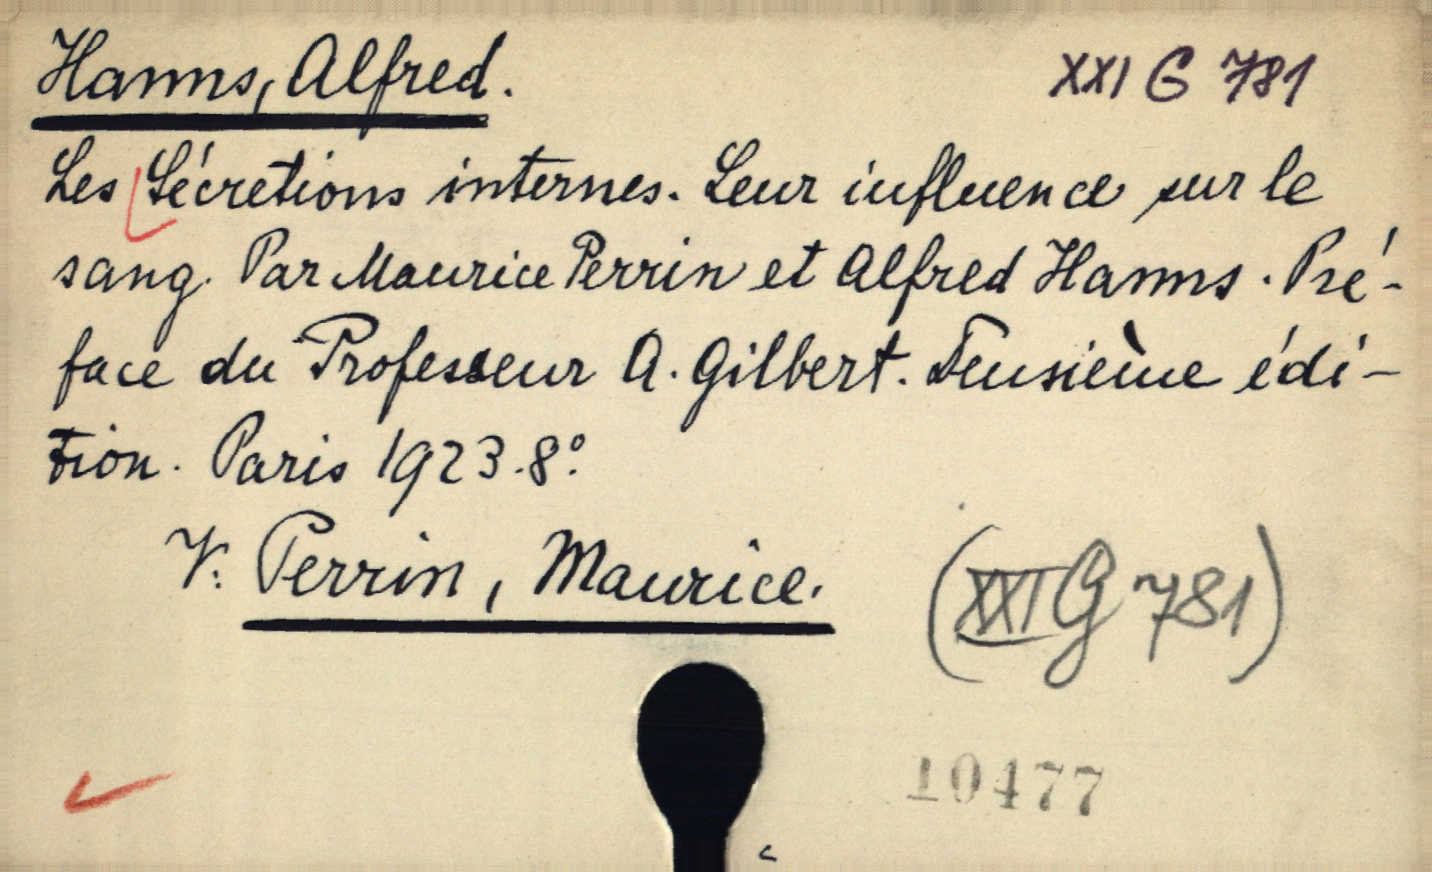 Hanns, Alfred. XXI G 781
Les Sécretions internes. Leur influence sur le
sang. Par Maurice Perrin et Alfred Hanns. Pré-
face du Professeur A. Gilbert. Deusième édi-
tion. Paris 1923. 8º.
V. Perrin, Maurice.
(XXI G 781)
10477